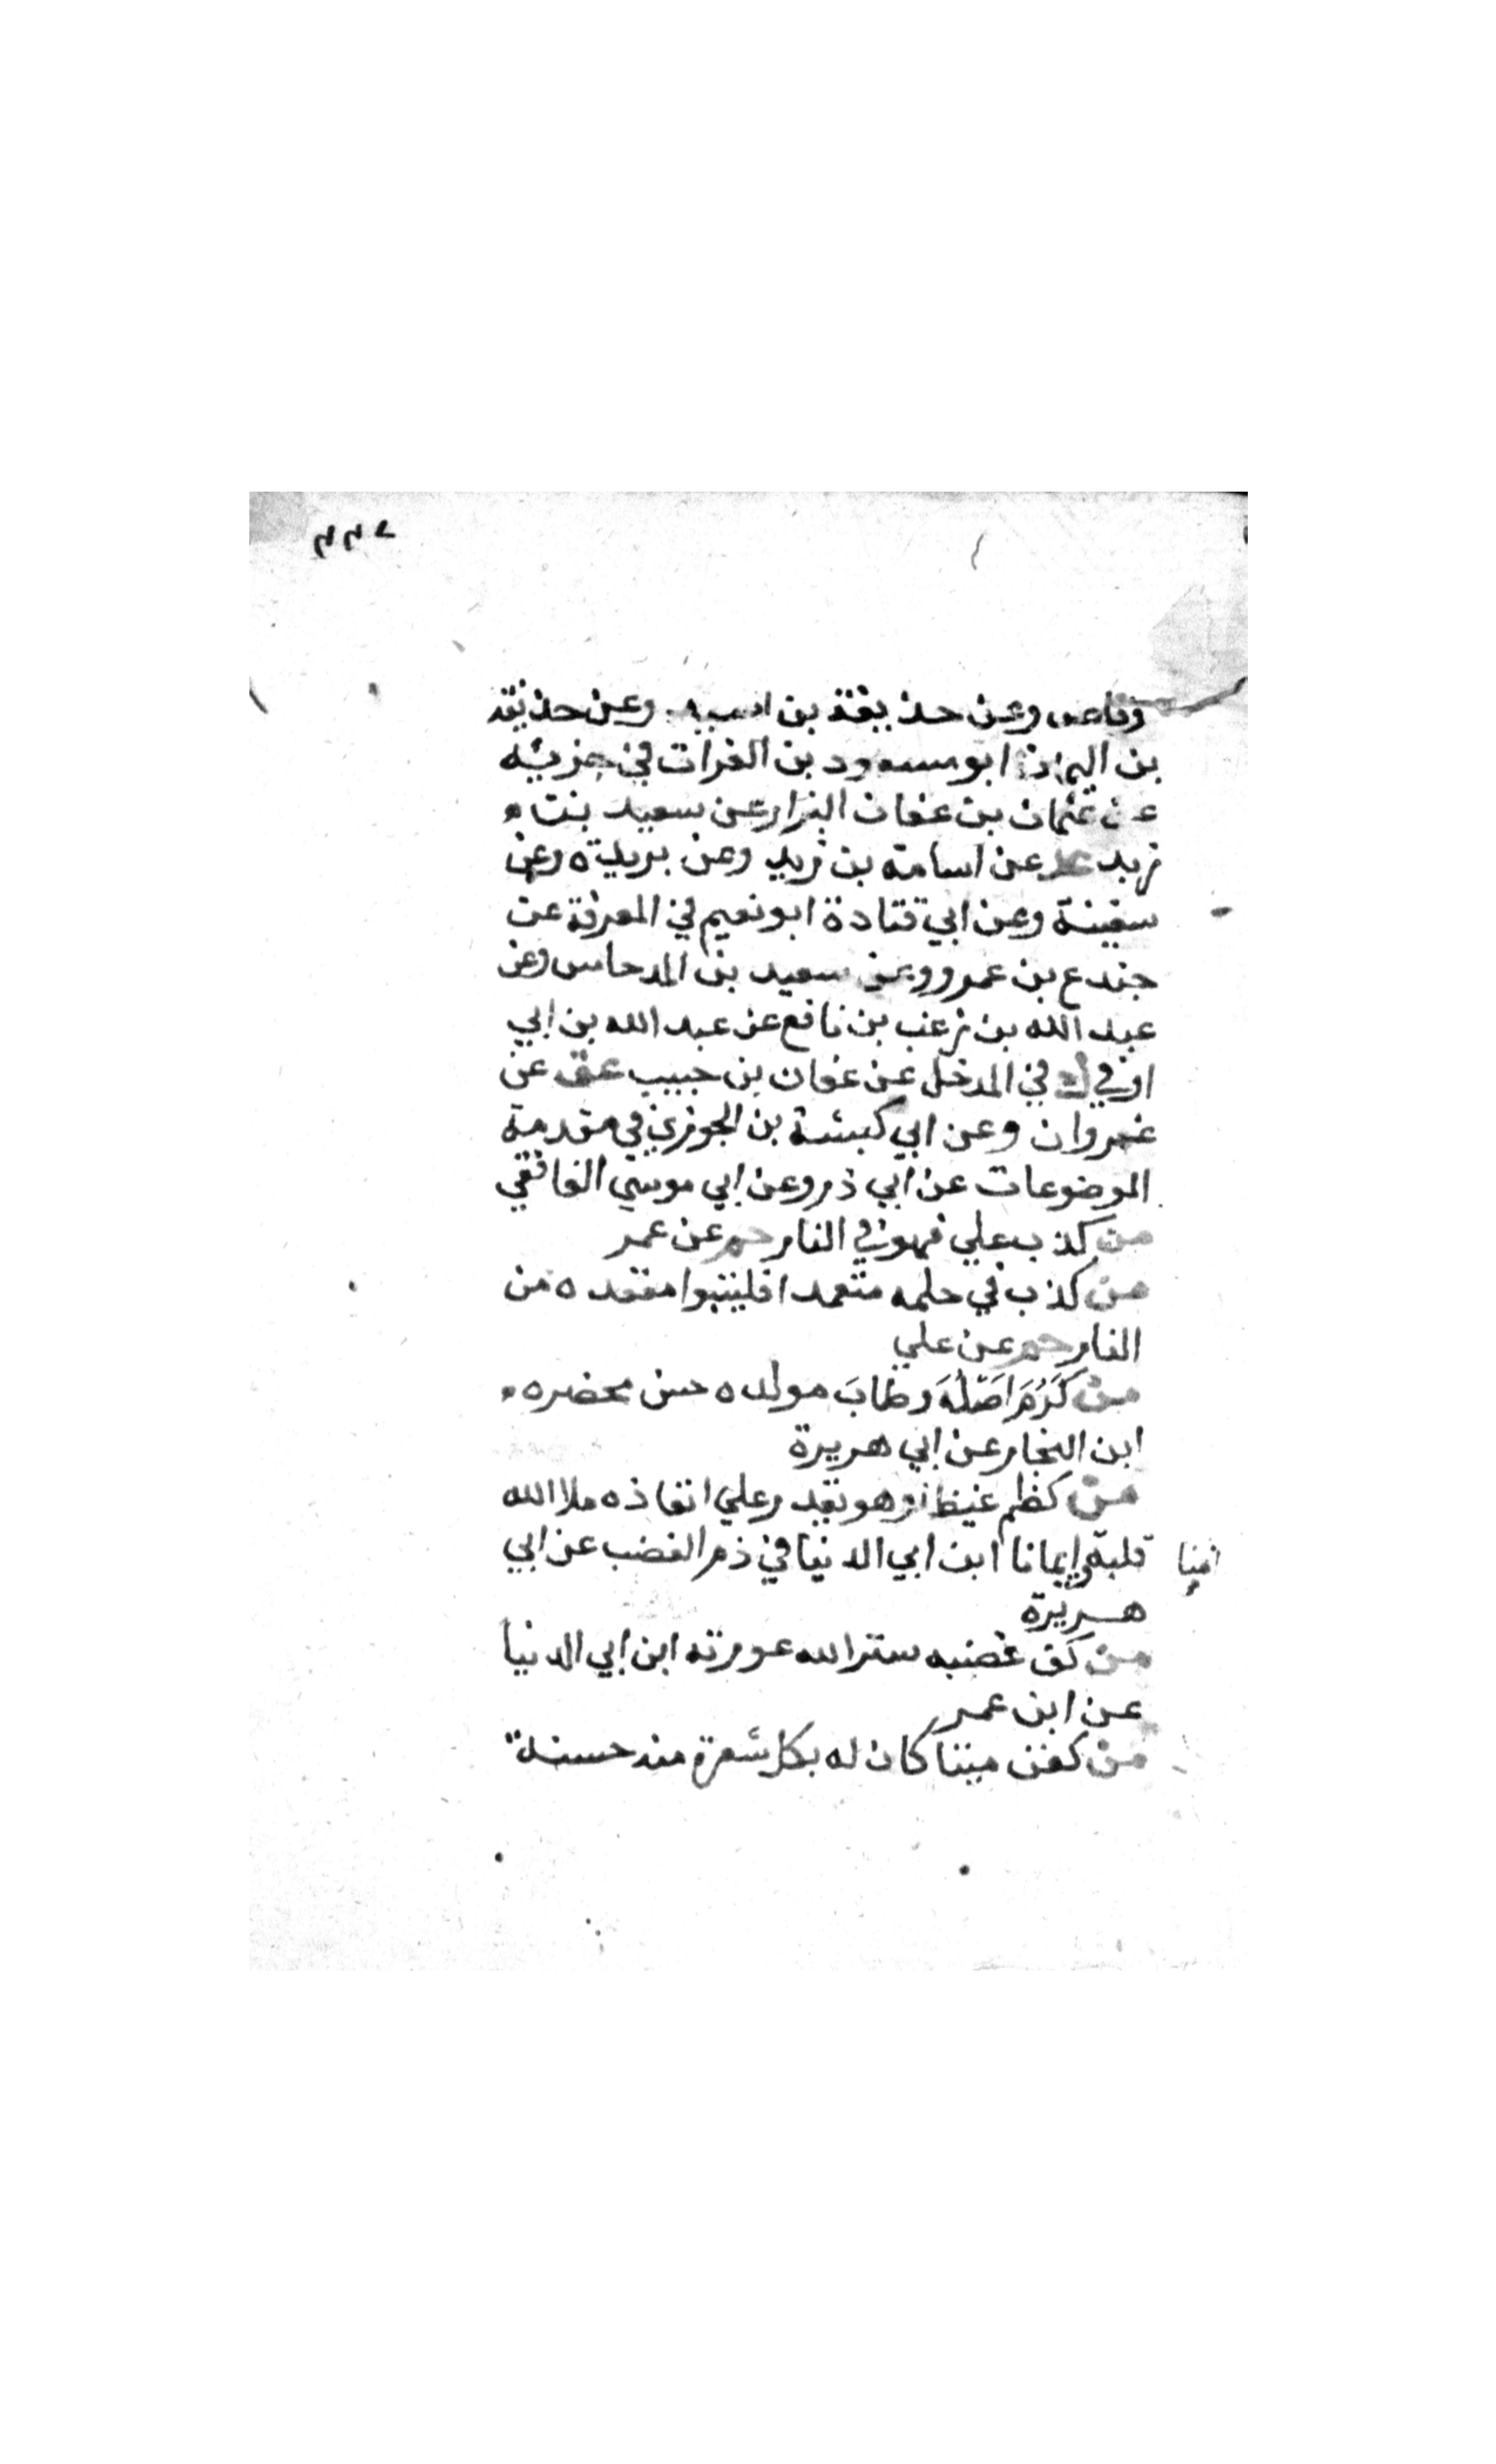 وقاص وعن حذيفة بن اسيد وعن حذيفة
بن اليمان ابو مسعود بن الفرات في جزئه
عن عثمان بن عفان البزار عن سعيد بنت
زيد عد عن اسامة بن زيد وعن بريدة وعن
سفينة وعن ابي قتادة ابو نعيم في المعرفة عن
جندع بن عمرو وعن سعيد بن المدحاس وعن
عبد الله بن زغب بن نافع عن عبد الله بن ابي
اوفي ك في المدخل عن عفان بن حبيب عق عن
غزوان وعن ابي كبشة بن الجوزي في مقدمة
الموضوعات عن ابي ذر وعن ابي موسي الغافقي
من كذب علي فهو في النار حم عن عمر
من كذب في حلمه متعمدا فليتبوا مقعده من
النار حم عن علي
من كَرُمَ اَصْلُهَ وطَابَ مولده حسن محضره
ابن النجار عن ابي هريرة
من كظم غيظا وهو يقدر علي انفاذه ملا الله
قلبه وإيمانا ابن ابي الدنيا في ذم الغضب عن ابي
امنا
هريرة
من كف غضبه ستر الله عورته ابن ابي الدنيا
عن ابن عمر
من كفن ميتا كان له بكل شعرة منه حسنة